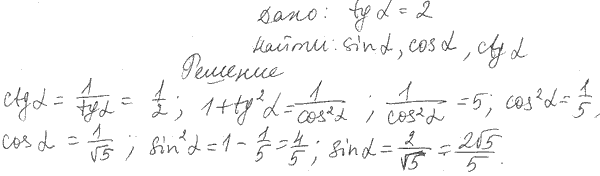 Дано: tg α = 2
Найти: sin α, cos α, ctg α
Решение
ctg α = 1/tg α = 1/2; 1 + tg² α = 1/cos² α; 1/cos² α = 5; cos² α = 1/5,
cos α = 1/√5; sin² α = 1 - 1/5 = 4/5; sin α = 2/√5 = 2√5/5.